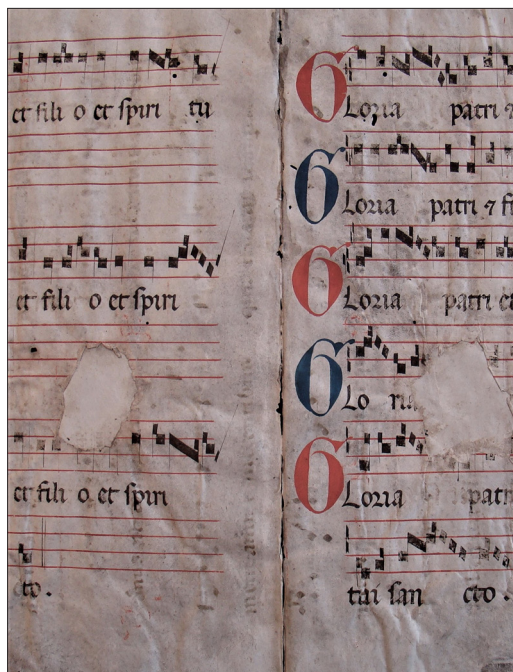 et fili o et spiri tu
et fili o et spiri
et fili o et spiri
to.
GLoria patri ⁊
GLoria patri ⁊ fi
GLoria patri et
GLo ria
GLoria patri
tui san cto.